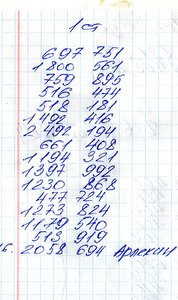 1 ст.
697 751
1800 561
759 895
516 474
518 181
1492 416
2492 194
661 408
1194 321
1397 992
1230 868
477 724
1273 824
1179 540
513 919
16. 2058 694 Арлекин